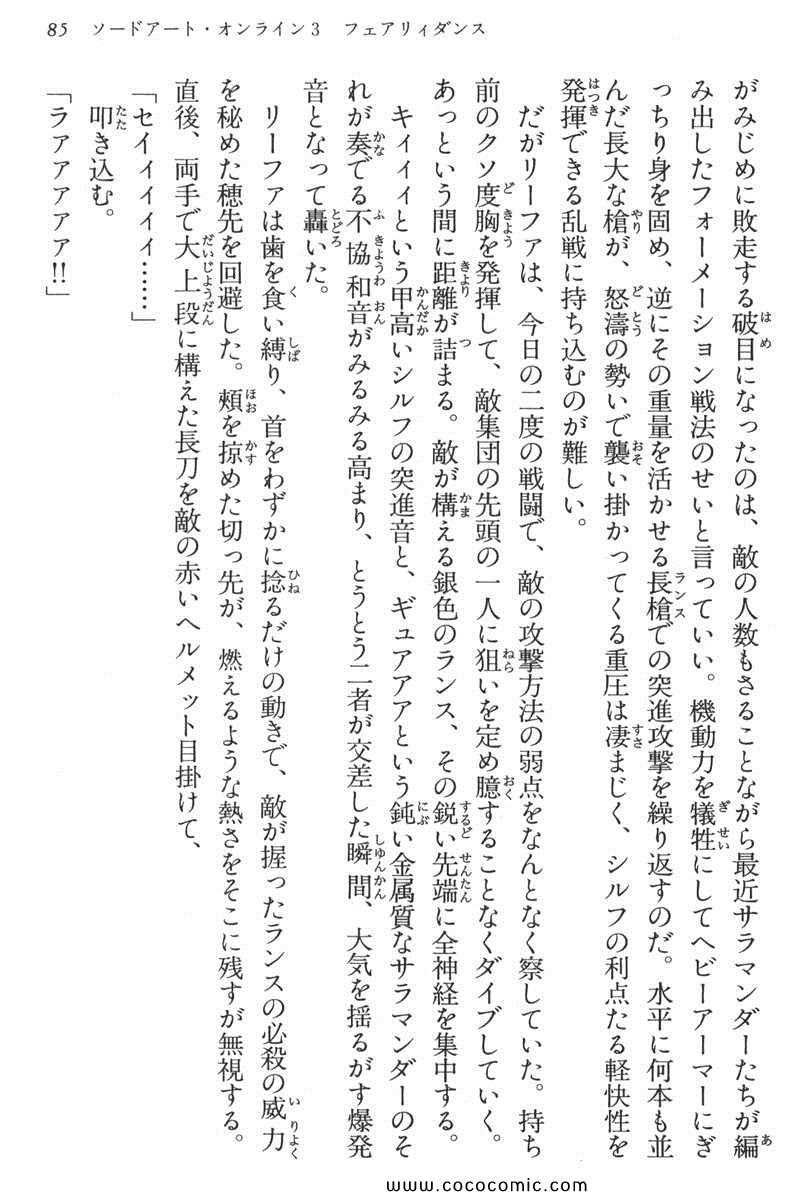 85　ソードアート・オンライン3　フェアリィダンス
がみじめに敗走する破目になったのは、敵の人数もさることながら最近サラマンダーたちが編
み出したフォーメーション戦法のせいと言っていい。機動力を犠牲にしてヘビーアーマーにぎ
っちり身を固め、逆にその重量を活かせる長槍での突進攻撃を繰り返すのだ。水平に何本も並
んだ長大な槍が、怒濤の勢いで襲い掛かってくる重圧は凄まじく、シルフの利点たる軽快性を
発揮できる乱戦に持ち込むのが難しい。
だがリーファは、今日の二度の戦闘で、敵の攻撃方法の弱点をなんとなく察していた。持ち
前のクソ度胸を発揮して、敵集団の先頭の一人に狙いを定め臆することなくダイブしていく。
あっという間に距離が詰まる。敵が構える銀色のランス、その鋭い先端に全神経を集中する。
キィィィという甲高いシルフの突進音と、ギュアアアという鈍い金属質なサラマンダーのそ
れが奏でる不協和音がみるみる高まり、とうとう二者が交差した瞬間、大気を揺るがす爆発
音となって轟いた。
リーファは歯を食い縛り、首をわずかに捻るだけの動きで、敵が握ったランスの必殺の威力
を秘めた穂先を回避した。頬を掠めた切っ先が、燃えるような熱さをそこに残すが無視する。
直後、両手で大上段に構えた長刀を敵の赤いヘルメット目掛けて、
「セイィィィィ……」
叩き込む。
「ラァァァァァ!!」
www.cococomic.com